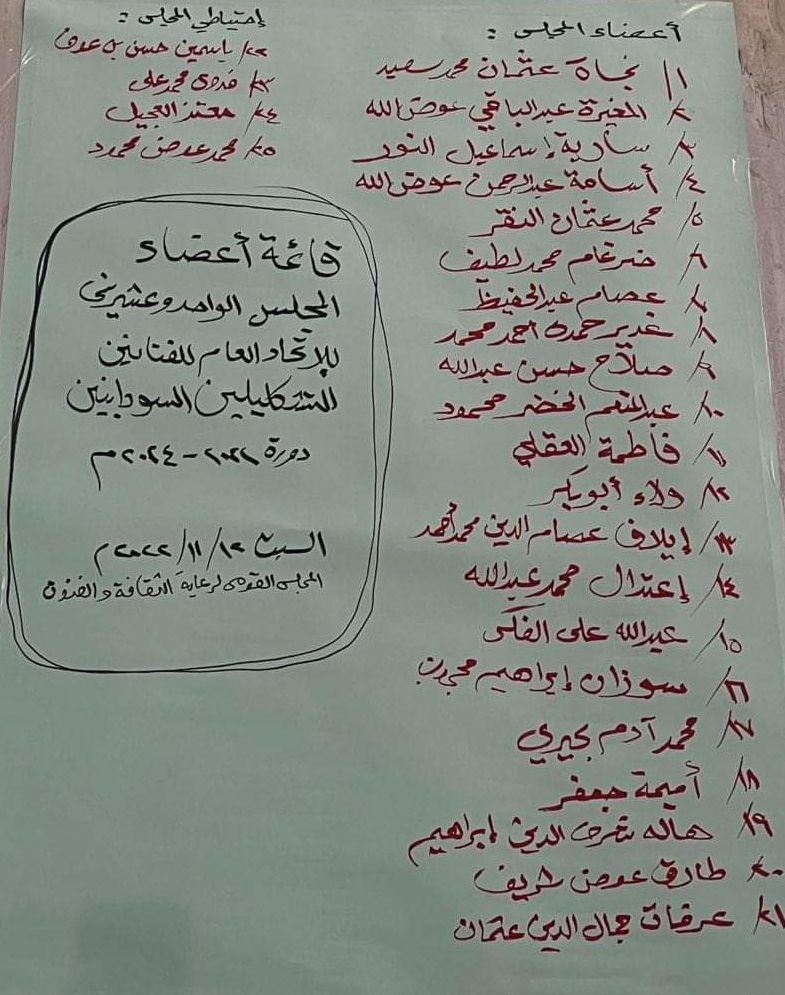 أعضاء المجلس :
١/ نجاة عثمان محمد سعيد
٢/ المغيرة عبدالباقي عوض الله
٣/ سارية إسماعيل النور
٤/ أسامة عبدالرحمن عوض الله
٥/ محمد عثمان النقر
٦/ ضرغام محمد لطيف
٧/ عصام عبدالحفيظ
٨/ غدير حمدة احمد محمد
٩/ صلاح حسن عبدالله
١٠/ عبدالمنعم الخضر محمود
١١/ فاطمة العقلي
١٢/ ولاء أبوبكر
١٣/ إيلاف عصام الدين محمد أحمد
١٤/ إعتدال محمد عبدالله
١٥/ عبدالله على الفكى
١٦/ سوزان إبراهيم
١٧/ محمد آدم بحيري
١٨/ أميمة جعفر
١٩/ هاله شرف الدين إبراهيم
٢٠/ طارق عوض شريف
٢١/ عرفات جمال الدين عثمان
إحتياطي المجلس :
٢٢/ ياسمين حسن بن عوف
٢٣/ فدوى محمد على
٢٤/ معتز العجيل
٢٥/ محمد عوض محمود
قائمة أعضاء
المجلس الواحد وعشرين
للإتحاد العام للفنانين
التشكيليين السودانين
دورة ٢٠٢٢ - ٢٠٢٤م
السبت ١٢/ ١١/ ٢٠٢٢م
المجلس القومى لرعاية الثقافة والفنون